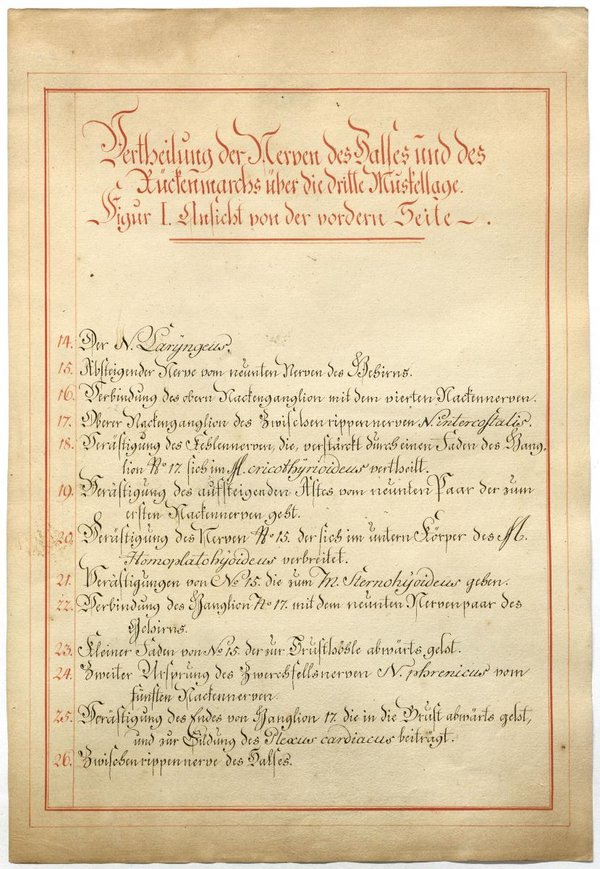 Vertheilung der Nerven des Halses und des
Rückenmarchs über die dritte Muskellage.
Figur I. Ansicht von der vordern Seite.
14. Der N. Laryngeus.
15. Absteigender Nerve vom neunten Nerven des Gehirns.
16. Verbindung des obern Nackenganglion mit dem vierten Nackennerven.
17. Oberer Nackenganglion des Zwischenrippennerven N. intercostalis.
18. Verästigung des Kehlennerven, die, verstärckt durch einen Faden des Gang-
lion No 17. sich im M. cricothÿrioideus vertheilt.
19. Verästigung des aufsteigenden Astes vom neunten Paar der zum
ersten Nackennerven geht.
20. Verästigung des Nerven No 15. der sich im untern Körper des M.
Homoplatohÿoideus verbreitet.
21. Verästigungen von No 15. die zum M. Sternohÿoideus gehen.
22. Verbindung des Ganglion No 17. mit dem neunten Nervenpaar des
Gehirns.
23. Kleiner Faden von No 15. der zur Brusthöhle abwärts geht.
24. Zweiter Ursprung des Zwerchfellsnerven N. phrenicus vom
fünften Nackennerven.
25. Verästigung des Endes von Ganglion 17. die in die Brust abwärts geht,
und zur Bildung des Plexus cardiacus beiträgt.
26. Zwischenrippennerve des Halses.